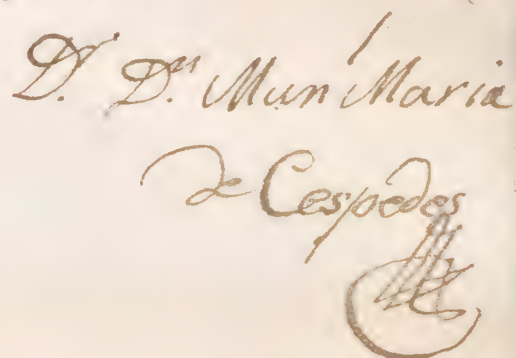 Dr. Dn. Mun Maria
de Cespedes